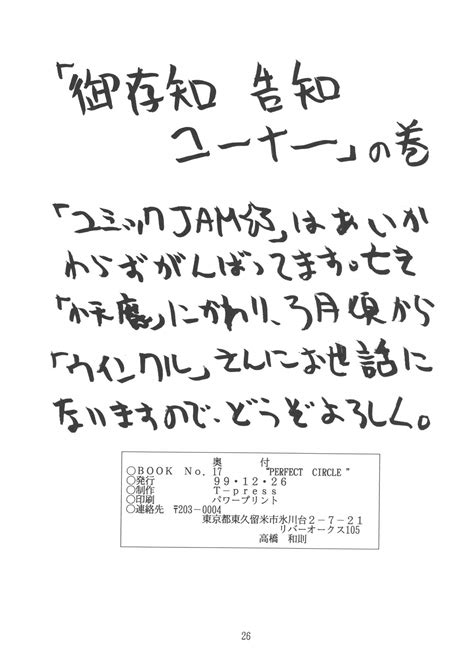 「御存知 告知
コーナー」の巻
「コミックJAM系」はあいか
わらずがんばってます。亡き
「水天魔」にかわり、3月頃から
「ウインクル」さんにお世話に
なりますので、どうぞよろしく。
奥 付
○BOOK No.17 "PERFECT CIRCLE"
○発行 99・12・26
○制作 T-press
○印刷 パワープリント
○連絡先 〒203-0004
東京都東久留米市氷川台2-7-21
リバーオークス105
高橋 和則
26